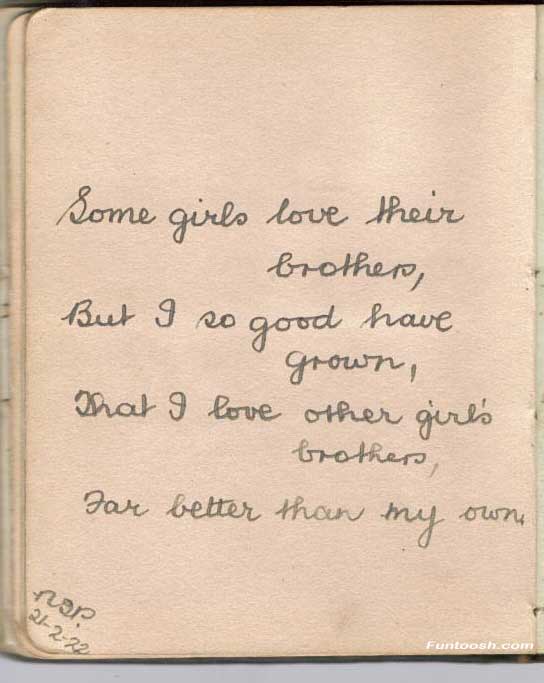 Some girls love their
brothers,
But I so good have
grown,
That I love other girl's
brothers,
Far better than my own.
21-2-22
Funtoosh.com